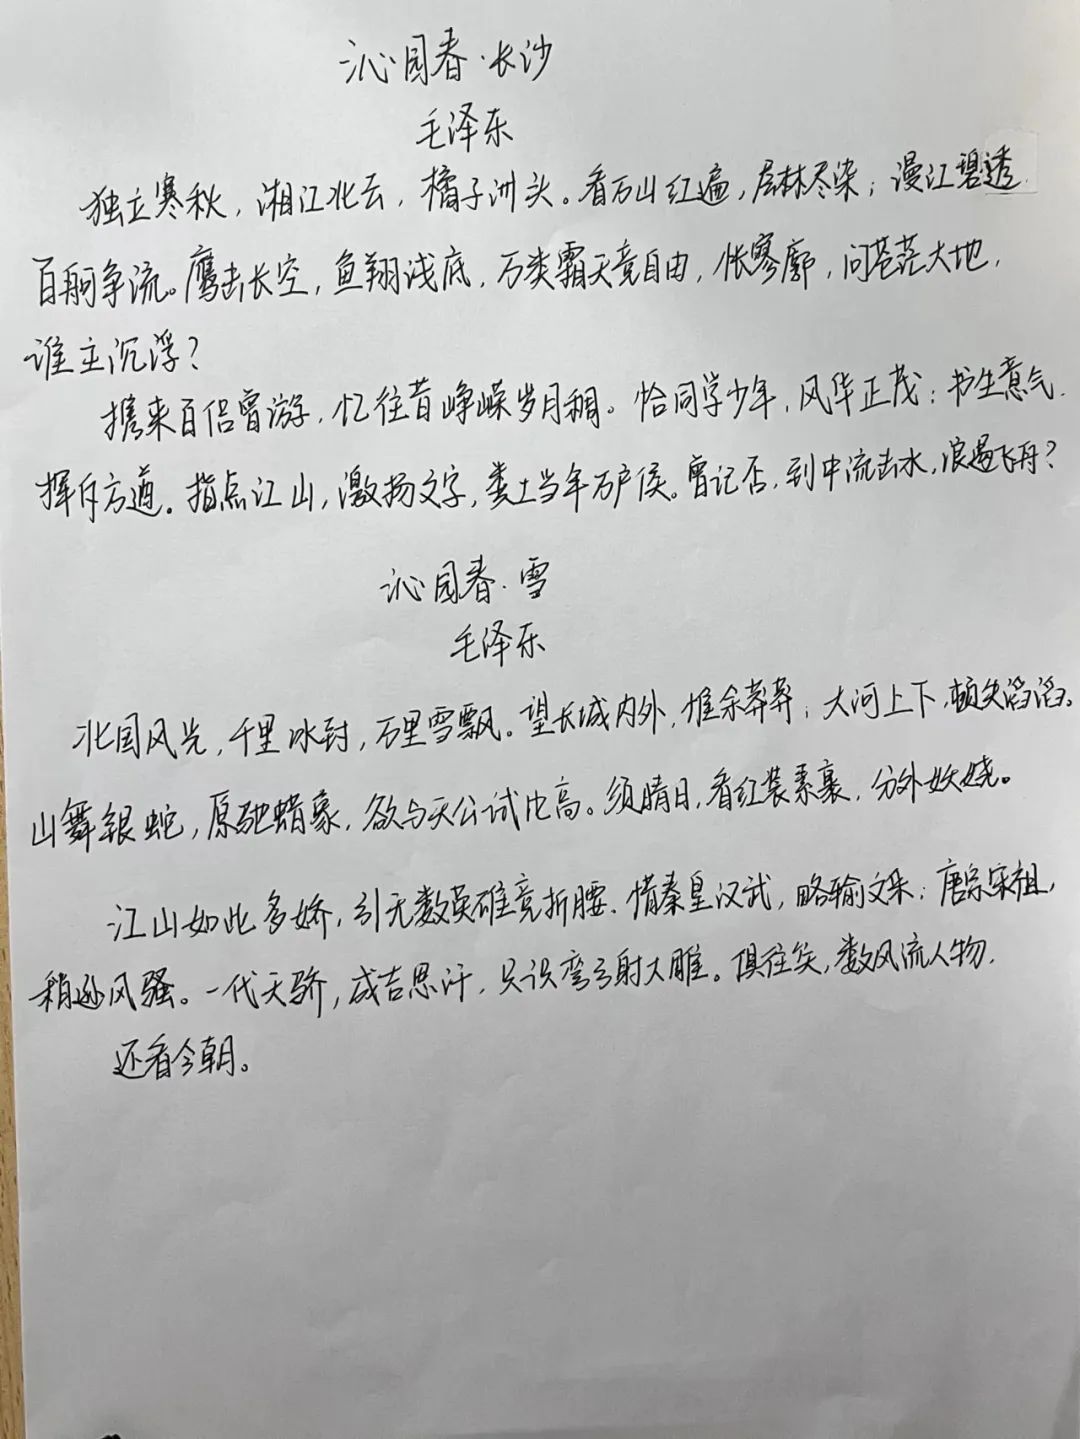 沁园春·长沙
毛泽东
独立寒秋，湘江北去，橘子洲头。看万山红遍，层林尽染；漫江碧透，
百舸争流。鹰击长空，鱼翔浅底，万类霜天竞自由，怅寥廓，问苍茫大地，
谁主沉浮？
携来百侣曾游，忆往昔峥嵘岁月稠。恰同学少年，风华正茂；书生意气，
挥斥方遒。指点江山，激扬文字，粪土当年万户侯。曾记否，到中流击水，浪遏飞舟？
沁园春·雪
毛泽东
北国风光，千里冰封，万里雪飘。望长城内外，惟余莽莽；大河上下，顿失滔滔。
山舞银蛇，原驰蜡象，欲与天公试比高。须晴日，看红装素裹，分外妖娆。
江山如此多娇，引无数英雄竞折腰。惜秦皇汉武，略输文采；唐宗宋祖，
稍逊风骚。一代天骄，成吉思汗，只识弯弓射大雕。俱往矣，数风流人物，
还看今朝。